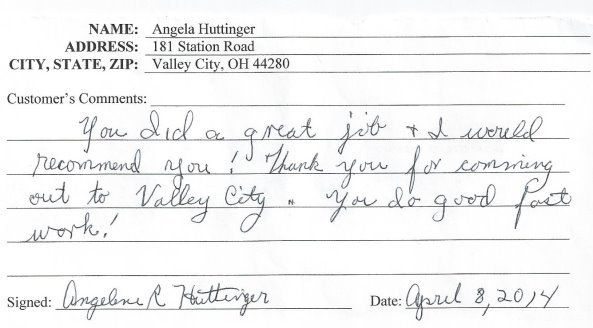 NAME: Angela Huttinger
ADDRESS: 181 Station Road
CITY, STATE, ZIP: Valley City, OH 44280
Customer's Comments:
You did a great job + I would
recommend you! Thank you for comming
out to Valley City. You do good fast
work!
Signed: Angelene R Huttinger Date: April 8, 2014